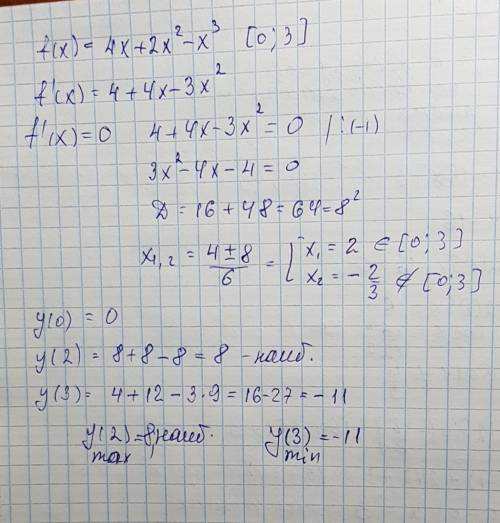 f(x) = 4x+2x²-x³ [0;3]
f'(x) = 4+4x-3x²
f'(x)=0 4+4x-3x²=0 /:(-1)
3x²-4x-4=0
D=16+48=64=8²
x₁,₂ = (4±8)/6 = [ x₁=2 ∈ [0;3]
x₂=-2/3 ∉ [0;3]
y(0) = 0
y(2) = 8+8-8=8 - наиб.
y(3)= 4+12-3·9=16-27=-11
y(2)=8, наиб. y(3)=-11
max min